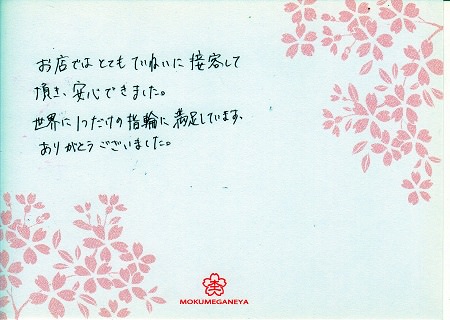 お店ではとてもていねいに接客して
頂き、安心できました。
世界に1つだけの指輪に満足しています、
ありがとうございました。
MOKUMEGANEYA